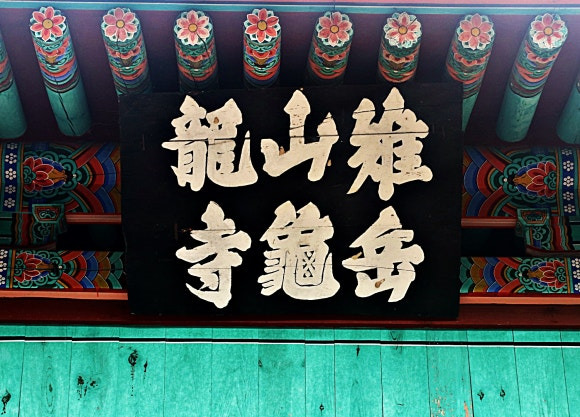 雉岳
山龜
龍寺